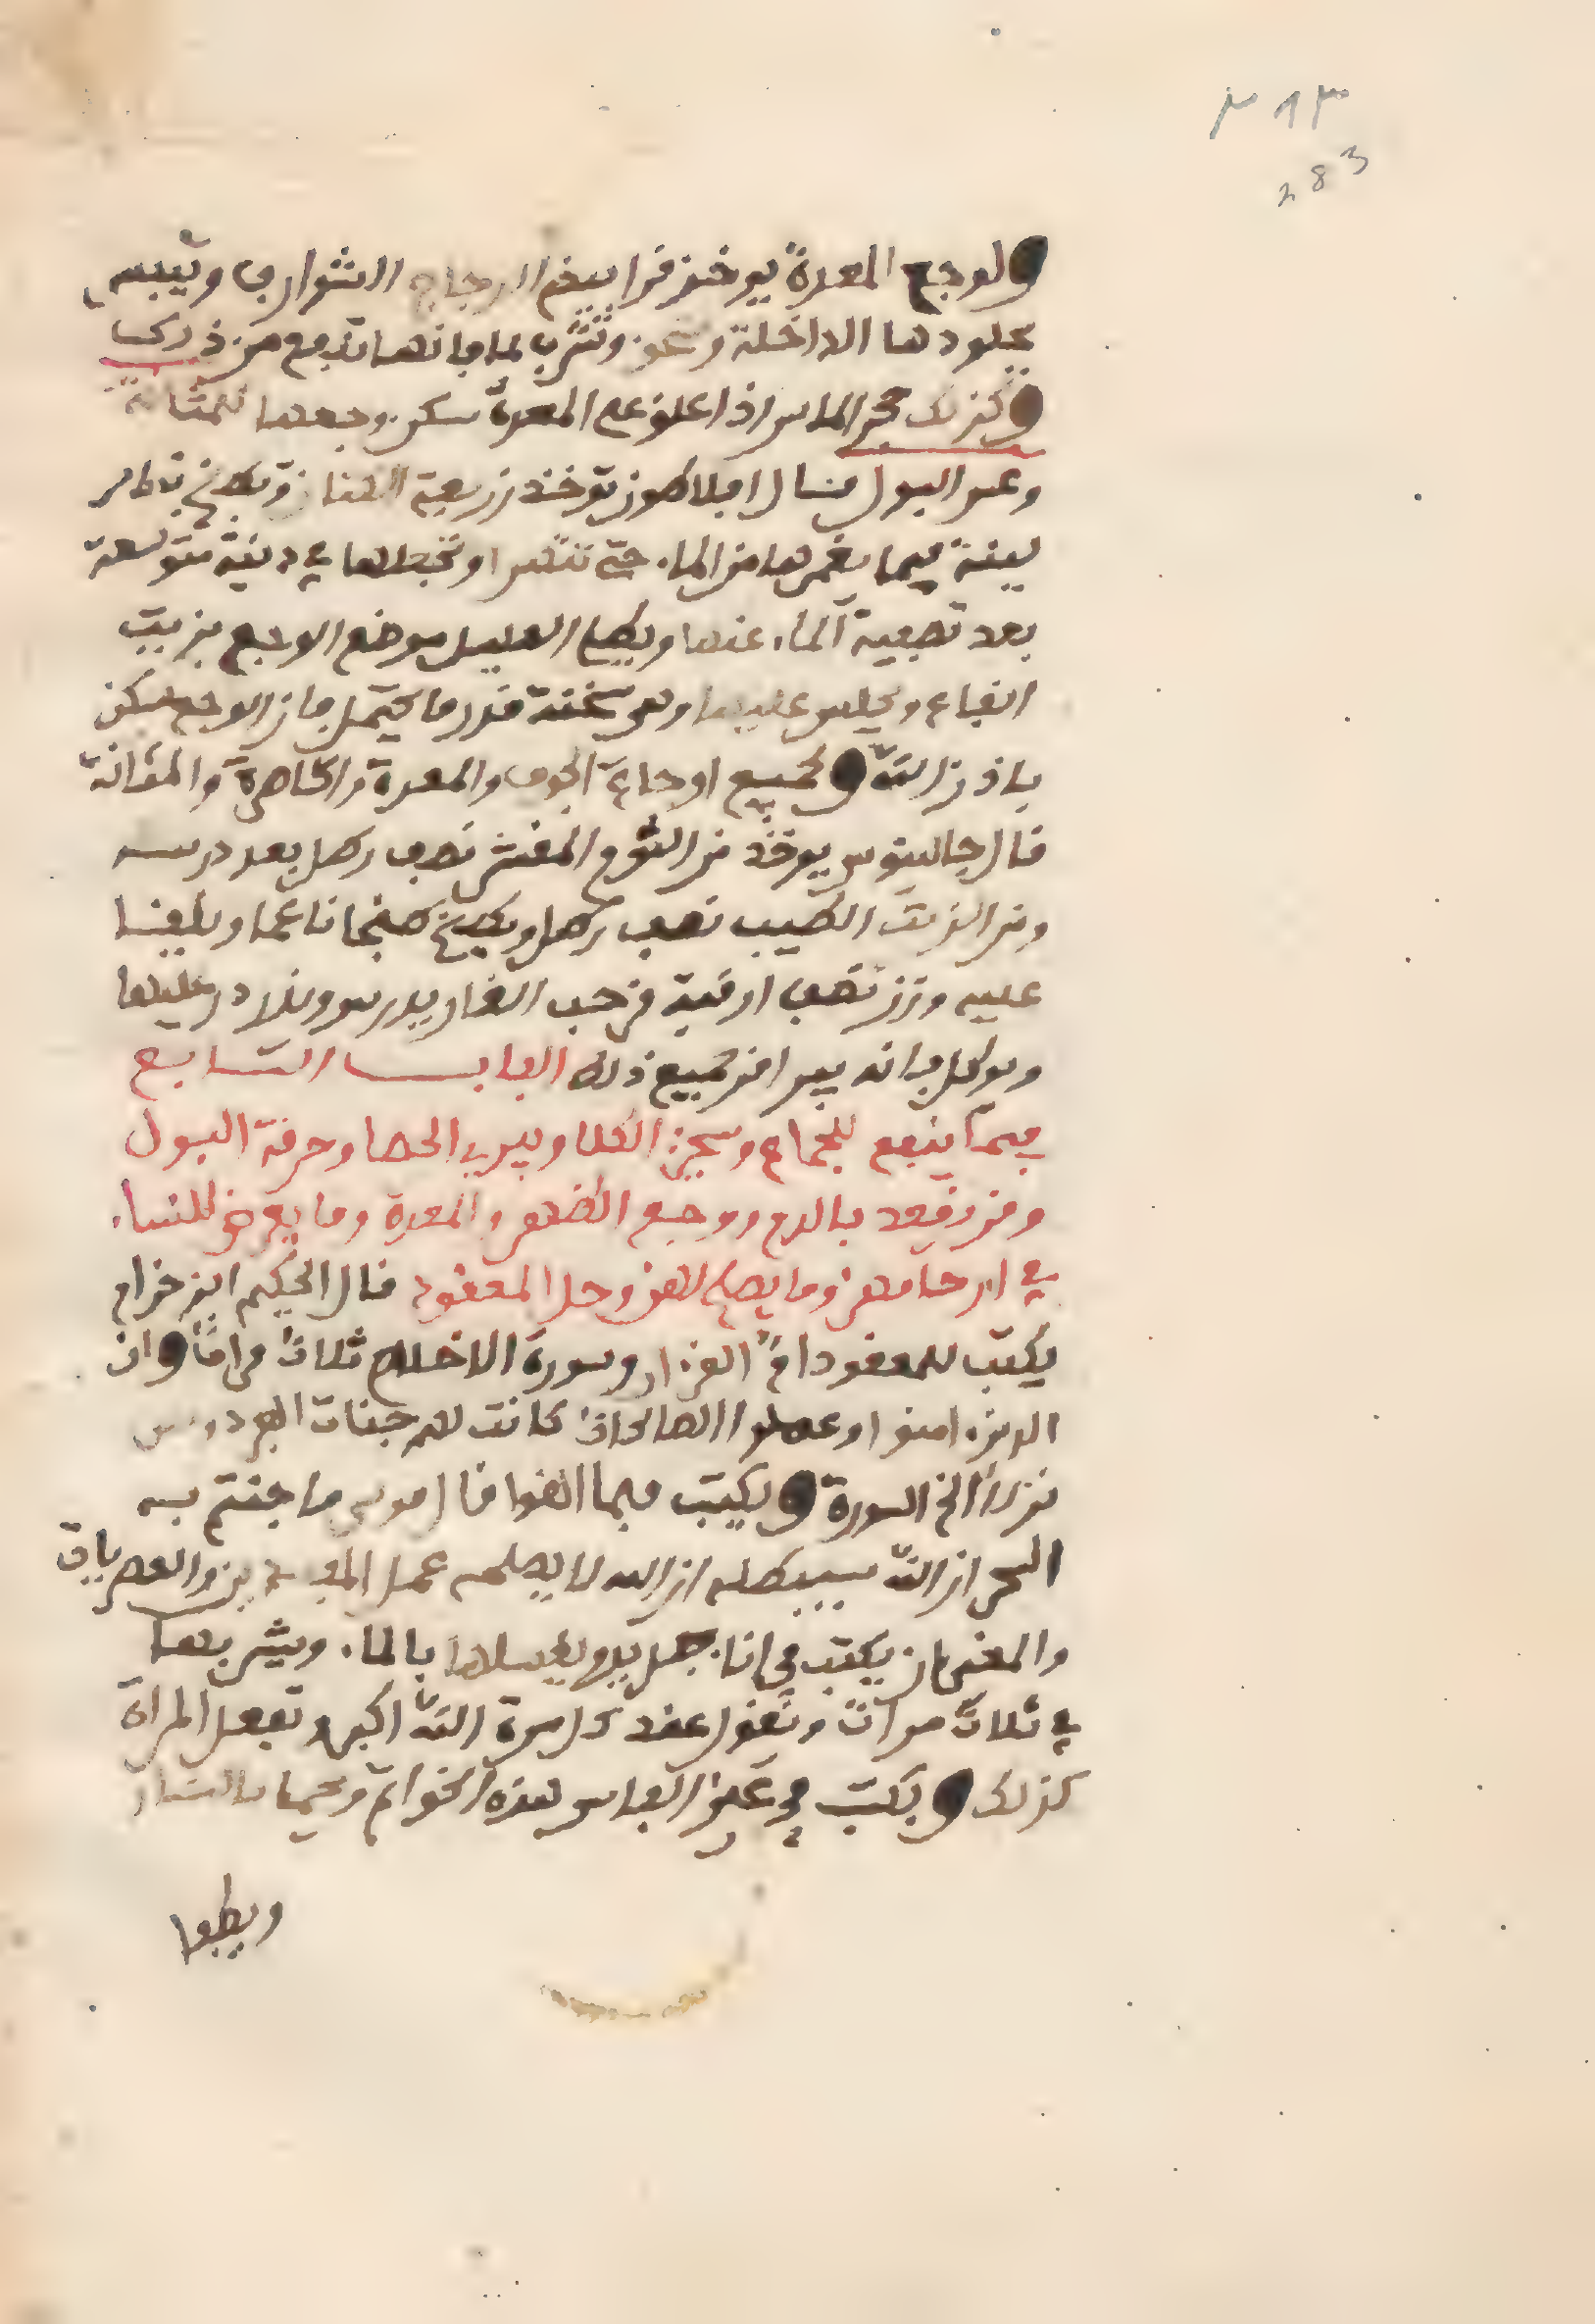 ٣١٣
283
ولوجع المعدة يوخذ قرانيض الدجاج الشوارف وتيبس
بجلودها الداخلة وتشرب بماء فانها تنفع من ذلك
وكذلك حجر الماس اذا علق على المعدة سكن وجعها للمثانة
وعسر البول قال افلاطون توخذ زريعة الكتان وتطبخ بنار
لينة فيما يغمرها من الماء حتى او تجعلها في متوسعة
بعد تصفية الماء عنها ويطلى العليل موضع الوجع بزيت
انفاع ويجلس عليها وهي سخنة قدر ما يحتمل فان الوجع يسكن
باذن الله ولجميع اوجاع الجوف والمعدة والخاصرة والمثانة
قال جالينوس يوخذ من الثوم المقشر نصف رطل بعد درسه
ومن الزيت الطيب نصف رطل ويطبخ طبخا ناعما ويلقى
عليه وزن نصف اوقية من حب الغار يدرس ويذر عليها
ويوكل فانه يبرا من جميع ذلك الباب السابع
فيما ينفع للجماع وسخن الكلا ويبري الحصا وحرقة البول
ومن يقعد بالدم ووجع الظهر والمعدة وما يعرض للنساء
في ارحامهن وما يصلح لهن وحل المعقود قال الحكيم ابن خزام
يكتب للمعقود ام القران وسورة الاخلاص ثلاث مرات وان
الذين امنوا وعملوا الصالحات كانت لهم جنات الفردوس
نزلا الخ السورة ويكتب فلما القوا قال موسى ما جئتم به
السحر ان الله سيبطله ان الله لا يصلح عمل المفسدين والعصر باق
والمغنى ان يكتب في اناء جديد ويغسلها بالماء ويشربها
في ثلاث مرات وتقول عند كل مرة الله اكبر وتفعل المراة
كذلك ويكتب في عين الفاس هذه الخواتم ويحما بالنار
ويطفا